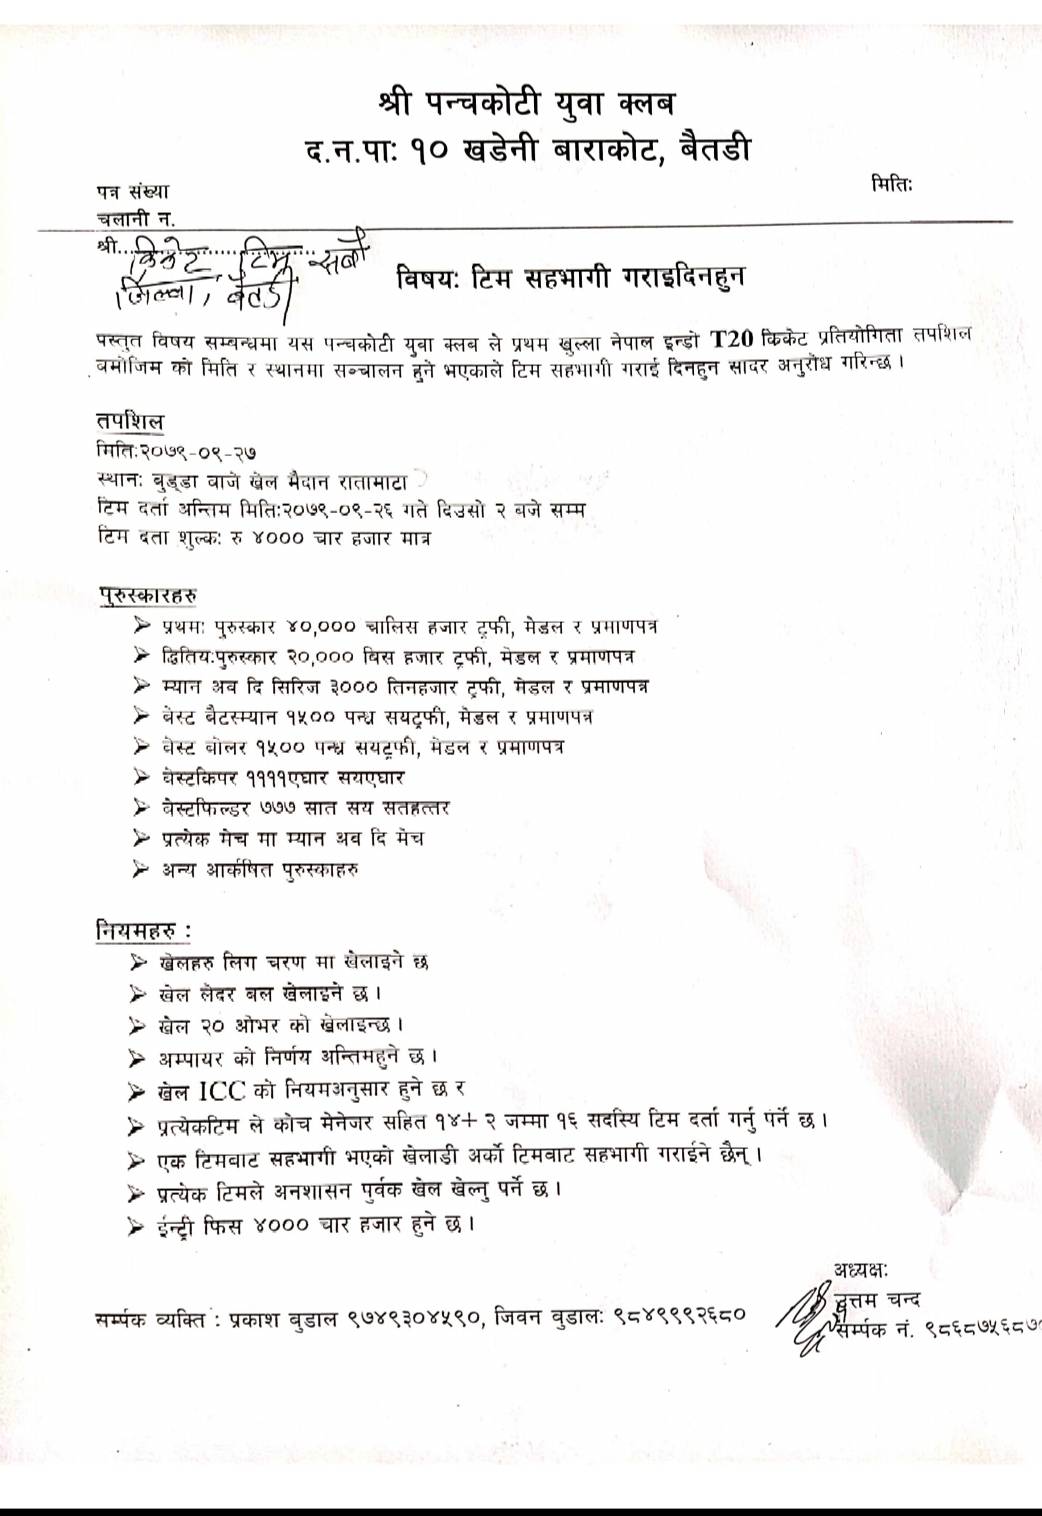 श्री पन्चकोटी युवा क्लब
द.न.पाः १० खडेनी बाराकोट, बैतडी
मितिः
पत्र संख्या
चलानी न.
श्री.. क्रिकेट टिम सबौ
जिल्ला, बैतडी
विषयः टिम सहभागी गराइदिनहुन
पस्तुत विषय सम्बन्धमा यस पन्चकोटी युवा क्लब ले प्रथम खुल्ला नेपाल इन्डो T20 किकेट प्रतियोगिता तपशिल
बमोजिम को मिति र स्थानमा सञ्चालन हुने भएकाले टिम सहभागी गराई दिनहुन सादर अनुरोध गरिन्छ ।
तपशिल
मितिः२०७९-०९-२७
स्थानः बुड्डा वाजे खेल मैदान रातामाटा
टिम दर्ता अन्तिम मितिः२०७९-०९-२६ गते दिउसो २ बजे सम्म
टिम दता शुल्कः रु ४००० चार हजार मात्र
पुरुस्कारहरु
➢ प्रथमः पुरुस्कार ४०,००० चालिस हजार ट्रफी, मेडल र प्रमाणपत्र
➢ द्वितियःपुरुस्कार २०,००० बिस हजार ट्रफी, मेडल र प्रमाणपत्र
➢ म्यान अब दि सिरिज ३००० तिनहजार ट्रफी, मेडल र प्रमाणपत्र
➢ बेस्ट बैटस्म्यान १५०० पन्ध्र सयट्रफी, मेडल र प्रमाणपत्र
➢ बेस्ट बोलर १५०० पन्ध्र सयट्रफी, मेडल र प्रमाणपत्र
➢ बेस्टकिपर ११११एघार सयएघार
➢ बेस्टफिल्डर ७७७ सात सय सतहत्तर
➢ प्रत्येक मेच मा म्यान अब दि मेच
➢ अन्य आर्कषित पुरुस्काहरु
नियमहरु :
➢ खेलहरु लिग चरण मा खेलाइने छ
➢ खेल लेदर बल खेलाइने छ ।
➢ खेल २० ओभर को खेलाइन्छ ।
➢ अम्पायर को निर्णय अन्तिमहुने छ ।
➢ खेल ICC को नियमअनुसार हुने छ र
➢ प्रत्येकटिम ले कोच मेनेजर सहित १४+ २ जम्मा १६ सदस्यि टिम दर्ता गर्नु पर्ने छ ।
➢ एक टिमबाट सहभागी भएको खेलाडी अर्को टिमबाट सहभागी गराईने छैन् ।
➢ प्रत्येक टिमले अनशासन पुर्वक खेल खेल्नु पर्ने छ ।
➢ ईन्ट्री फिस ४००० चार हजार हुने छ ।
अध्यक्षः
उत्तम चन्द
सर्म्पक नं. ९८६८७५६८७
सर्म्पक व्यक्ति : प्रकाश बुडाल ९७४९३०४५९०, जिवन बुडालः ९८४९९९२६८०